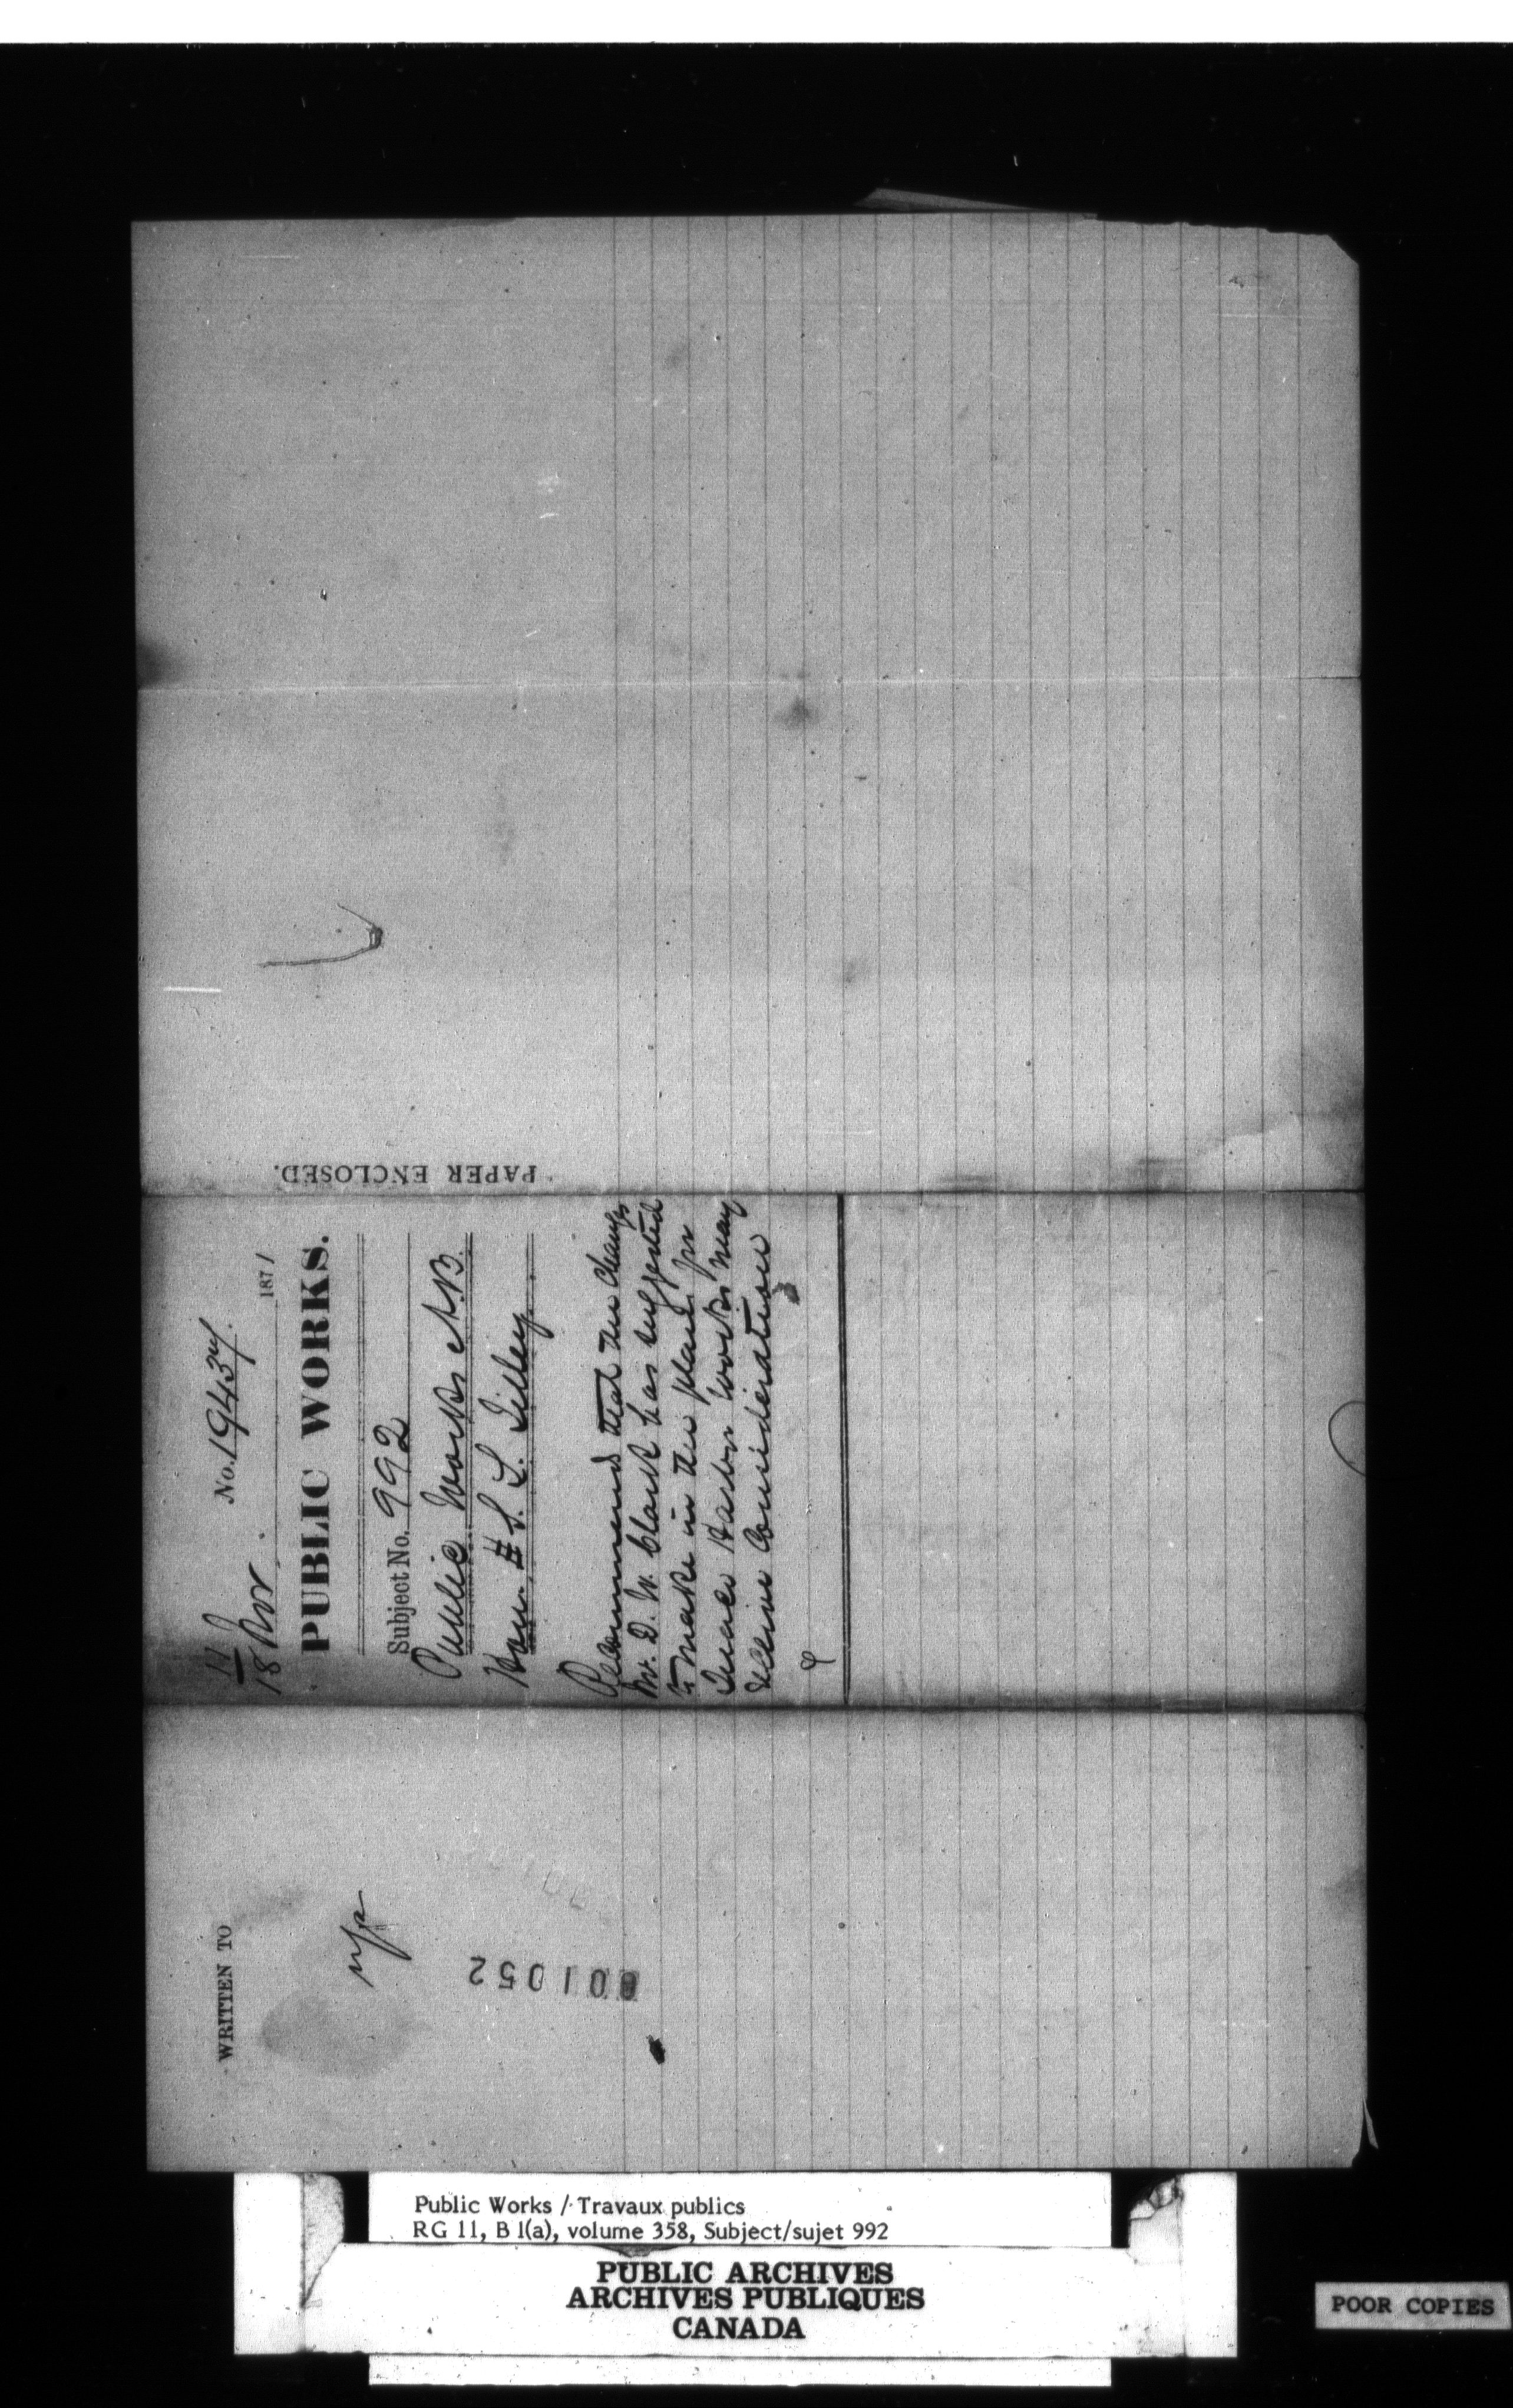 PAPER ENCLOSED.
17/18 Nov. No. 19437. 1871
PUBLIC WORKS.
Subject No. 992
Public Works N.B.
Hon. S. L. Tilley
Recommends that the changes
Mr. D. W. Clark has suggested
to make in the plans for
Quaco Harbor works may
receive consideration
WRITTEN TO
001052
Public Works / Travaux publics
RG 11, B 1(a), volume 358, Subject/sujet 992
PUBLIC ARCHIVES
ARCHIVES PUBLIQUES
CANADA
POOR COPIES